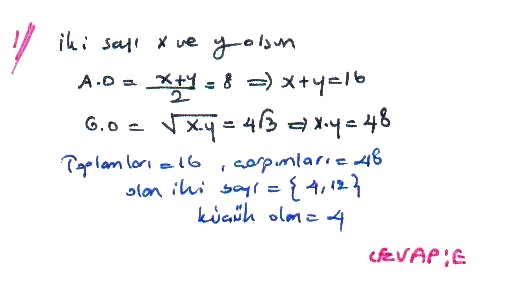 1/ iki sayı x ve y olsun
A.O = x+y/2 = 8 ⇒ x+y=16
G.O = √x.y = 4√3 ⇒ x.y = 48
Toplamları = 16 , çarpımları = 48
olan iki sayı = {4,12}
küçük olan = 4
CEVAP:E